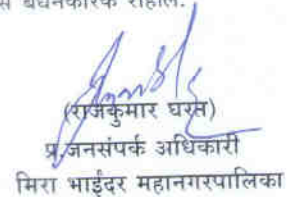 बंधनकारक राहील.
(राजकुमार घरत)
प्र.जनसंपर्क अधिकारी
मिरा भाईंदर महानगरपालिका